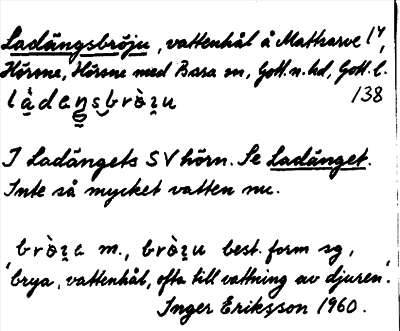 Ladängsbröju, vattenhål å Mattsarve 1⁴,
Hörsne, Hörsne med Bara sn, Gotl. n. hd, Gotl. l.
138
I Ladängets SV hörn. Se Ladänget.
Inte så mycket vatten nu.
m., best. form sg,
'brya, vattenhål, ofta till vattning av djuren'.
Inger Eriksson 1960.